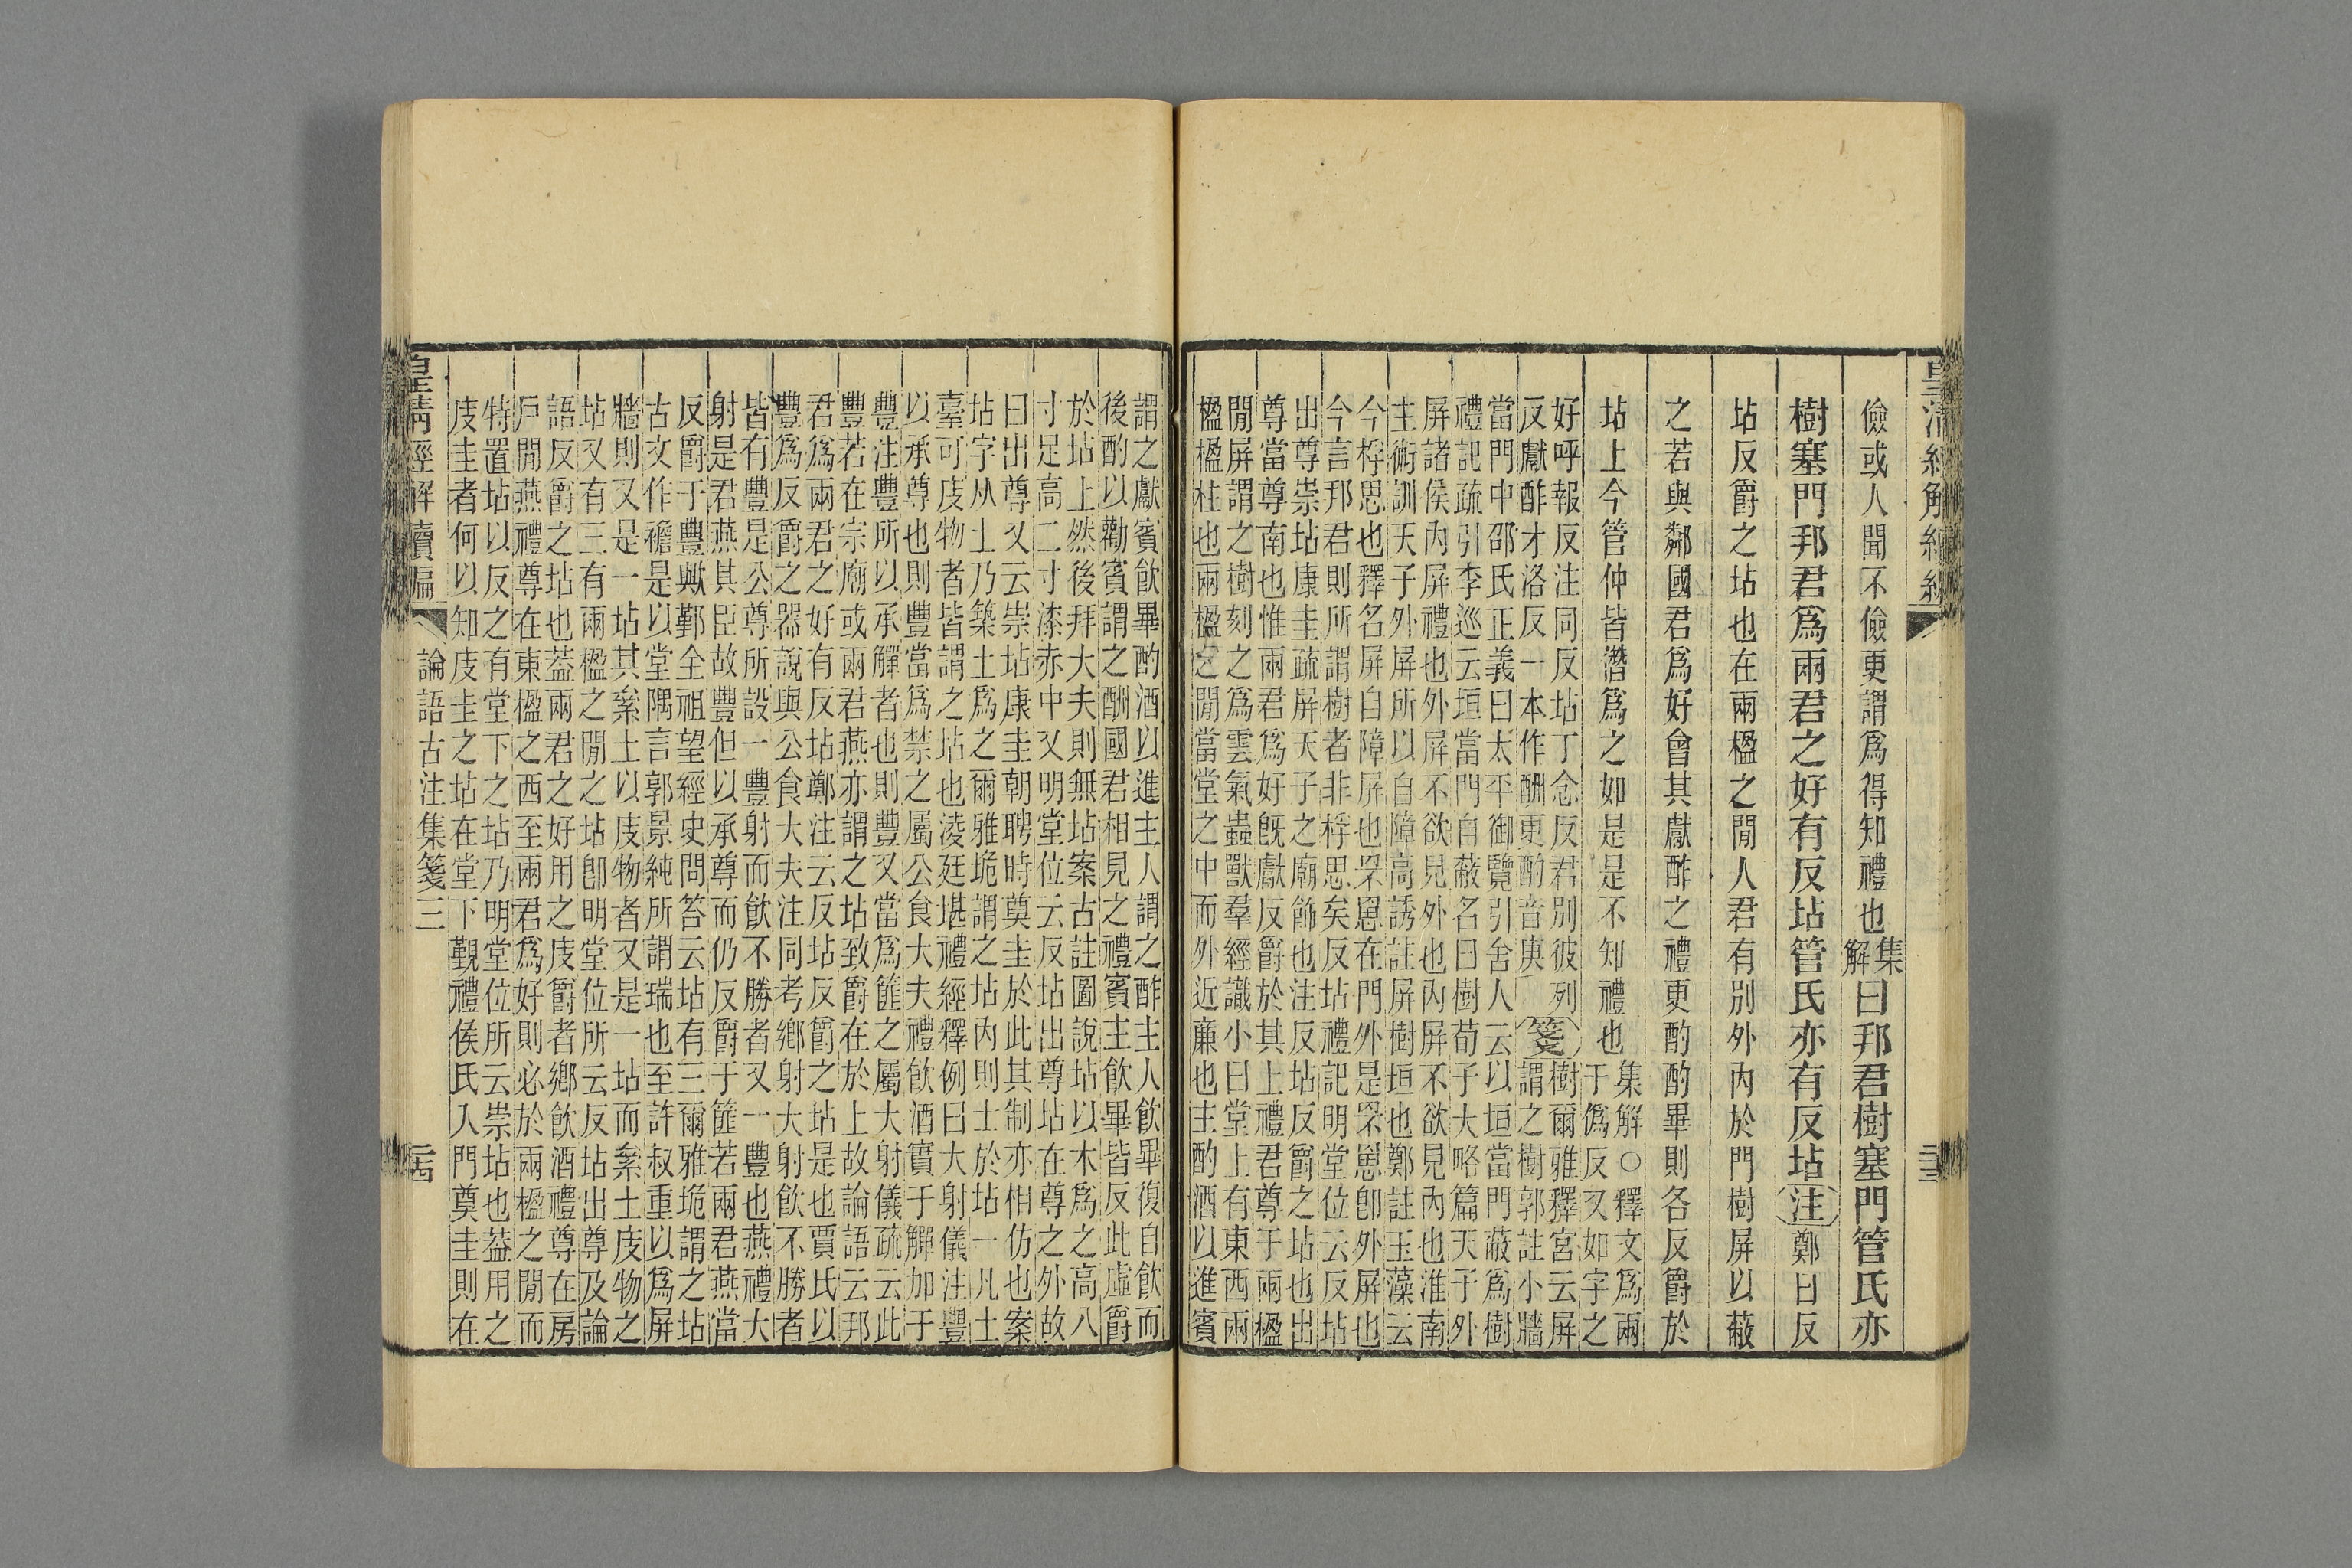 儉或人聞不儉更謂爲得知禮也集解曰邦君樹塞門管氏亦
樹塞門邦君爲兩君之好有反坫管氏亦有反坫注鄭曰反
坫反爵之坫也在兩楹之閒人君有別外內於門樹屏以蔽
之若與鄰國君爲好會其獻酢之禮更酌酌畢則各反爵於
坫上今管仲皆僭爲之如是是不知禮也
集解○釋文爲兩
于僞反又如字之
好呼報反注同反坫丁念反君別彼列
反獻酢才洛反一本作酬更酌音庚
箋
樹爾雅釋宮云屏
謂之樹郭註小牆
當門中邵氏正義曰太平御覽引舍人云以垣當門蔽爲樹
禮記疏引李巡云垣當門自蔽名曰樹荀子大略篇天子外
屏諸侯內屏禮也外屏不欲見外也內屏不欲見內也淮南
主術訓天子外屏所以自障高誘註屏樹垣也鄭註玉藻云
今桴思也釋名屏自障屏也罘罳在門外是罘罳卽外屏也
今言邦君則所謂樹者非桴思矣反坫禮記明堂位云反坫
出尊崇坫康圭疏屏天子之廟飾也注反坫反爵之坫也出
尊當尊南也惟兩君爲好旣獻反爵於其上禮君尊于兩楹
閒屏謂之樹刻之爲雲氣蟲獸羣經識小曰堂上有東西兩
楹楹柱也兩楹之閒當堂之中而外近廉也主酌酒以進賓
謂之獻賓飮畢酌酒以進主人謂之酢主人飮畢復自飮而
後酌以勸賓謂之酬國君相見之禮賓主飮畢皆反此虛爵
於坫上然後拜大夫則無坫案古註圖說坫以木爲之高八
寸足高二寸漆赤中又明堂位云反坫出尊坫在尊之外故
曰出尊又云崇坫康圭朝聘時奠圭於此其制亦相仿也案
坫字从土乃築土爲之爾雅垝謂之坫內則士於坫一凡土
臺可庋物者皆謂之坫也淩廷堪禮經釋例曰大射儀注豐
以承尊也則豐當爲禁之屬公食大夫禮飮酒實于觶加于
豐注豐所以承觶者也則豐又當爲篚之屬大射儀疏云此
豐若在宗廟或兩君燕亦謂之坫致爵在於上故論語云邦
君爲兩君之好有反坫鄭注云反坫反爵之坫是也賈氏以
豐爲反爵之器說與公食大夫注同考鄉射大射飮不勝者
皆有豐是公尊所設一豐射而飮不勝者又一豐也燕禮大
射是君燕其臣故豐但以承尊而仍反爵于篚若兩君燕當
反爵于豐歟鄞全祖望經史問答云坫有三爾雅垝謂之坫
古文作襜是以堂隅言郭景純所謂瑞也至許叔重以爲屏
牆則又是一坫其絫土以庋物者又是一坫而絫土庋物之
坫又有三有兩楹之閒之坫卽明堂位所云反坫出尊及論
語反爵之坫也葢兩君之好用之庋爵者鄉飮酒禮尊在房
戶閒燕禮尊在東楹之西至兩君爲好則必於兩楹之閒而
特置坫以反之有堂下之坫乃明堂位所云崇坫也葢用之
庋圭者何以知庋圭之坫在堂下覲禮侯氏入門奠圭則在
皇淸經解續編
論語古注集箋三